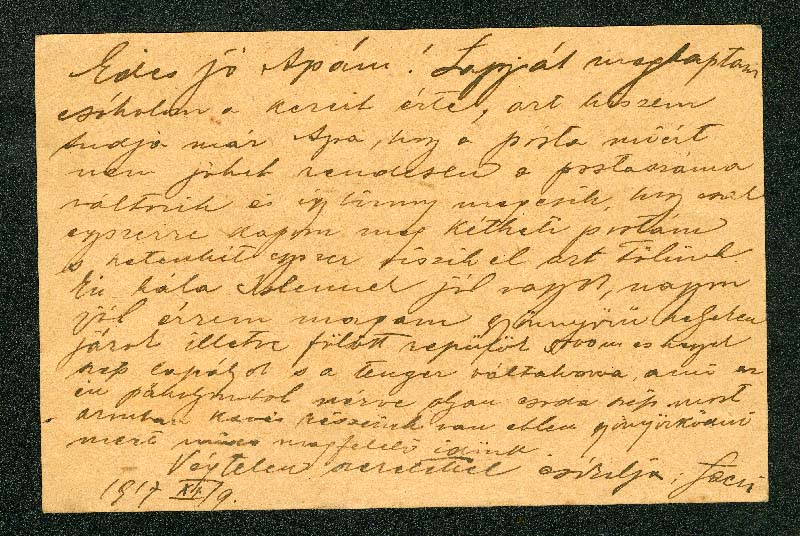 Édes jó Apám! Lapját megkaptam
csókolom a kezeit érte, azt hiszem
tudja már Apa, hogy a posta miért
nem jöhet rendesen a postaszáma
változik és így könnyen megesik, hogy csak
egyszerre kapom meg kétheti postám
s hetenkét egyszer viszik el azt Tőlünk
Én hála Istennek jól vagyok, nagyon
jól érzem magam gyönyörű helyeken
járok illetve fölött repülök hegyek
szép s a tenger változatossága, ami az
én nézve olyan csoda szép most
azonban kevés részünk van ebben gyönyörködni
mert nincs megfelelő időnk
Végtelen szeretettel csókolja: Laci
1917 XII/9.